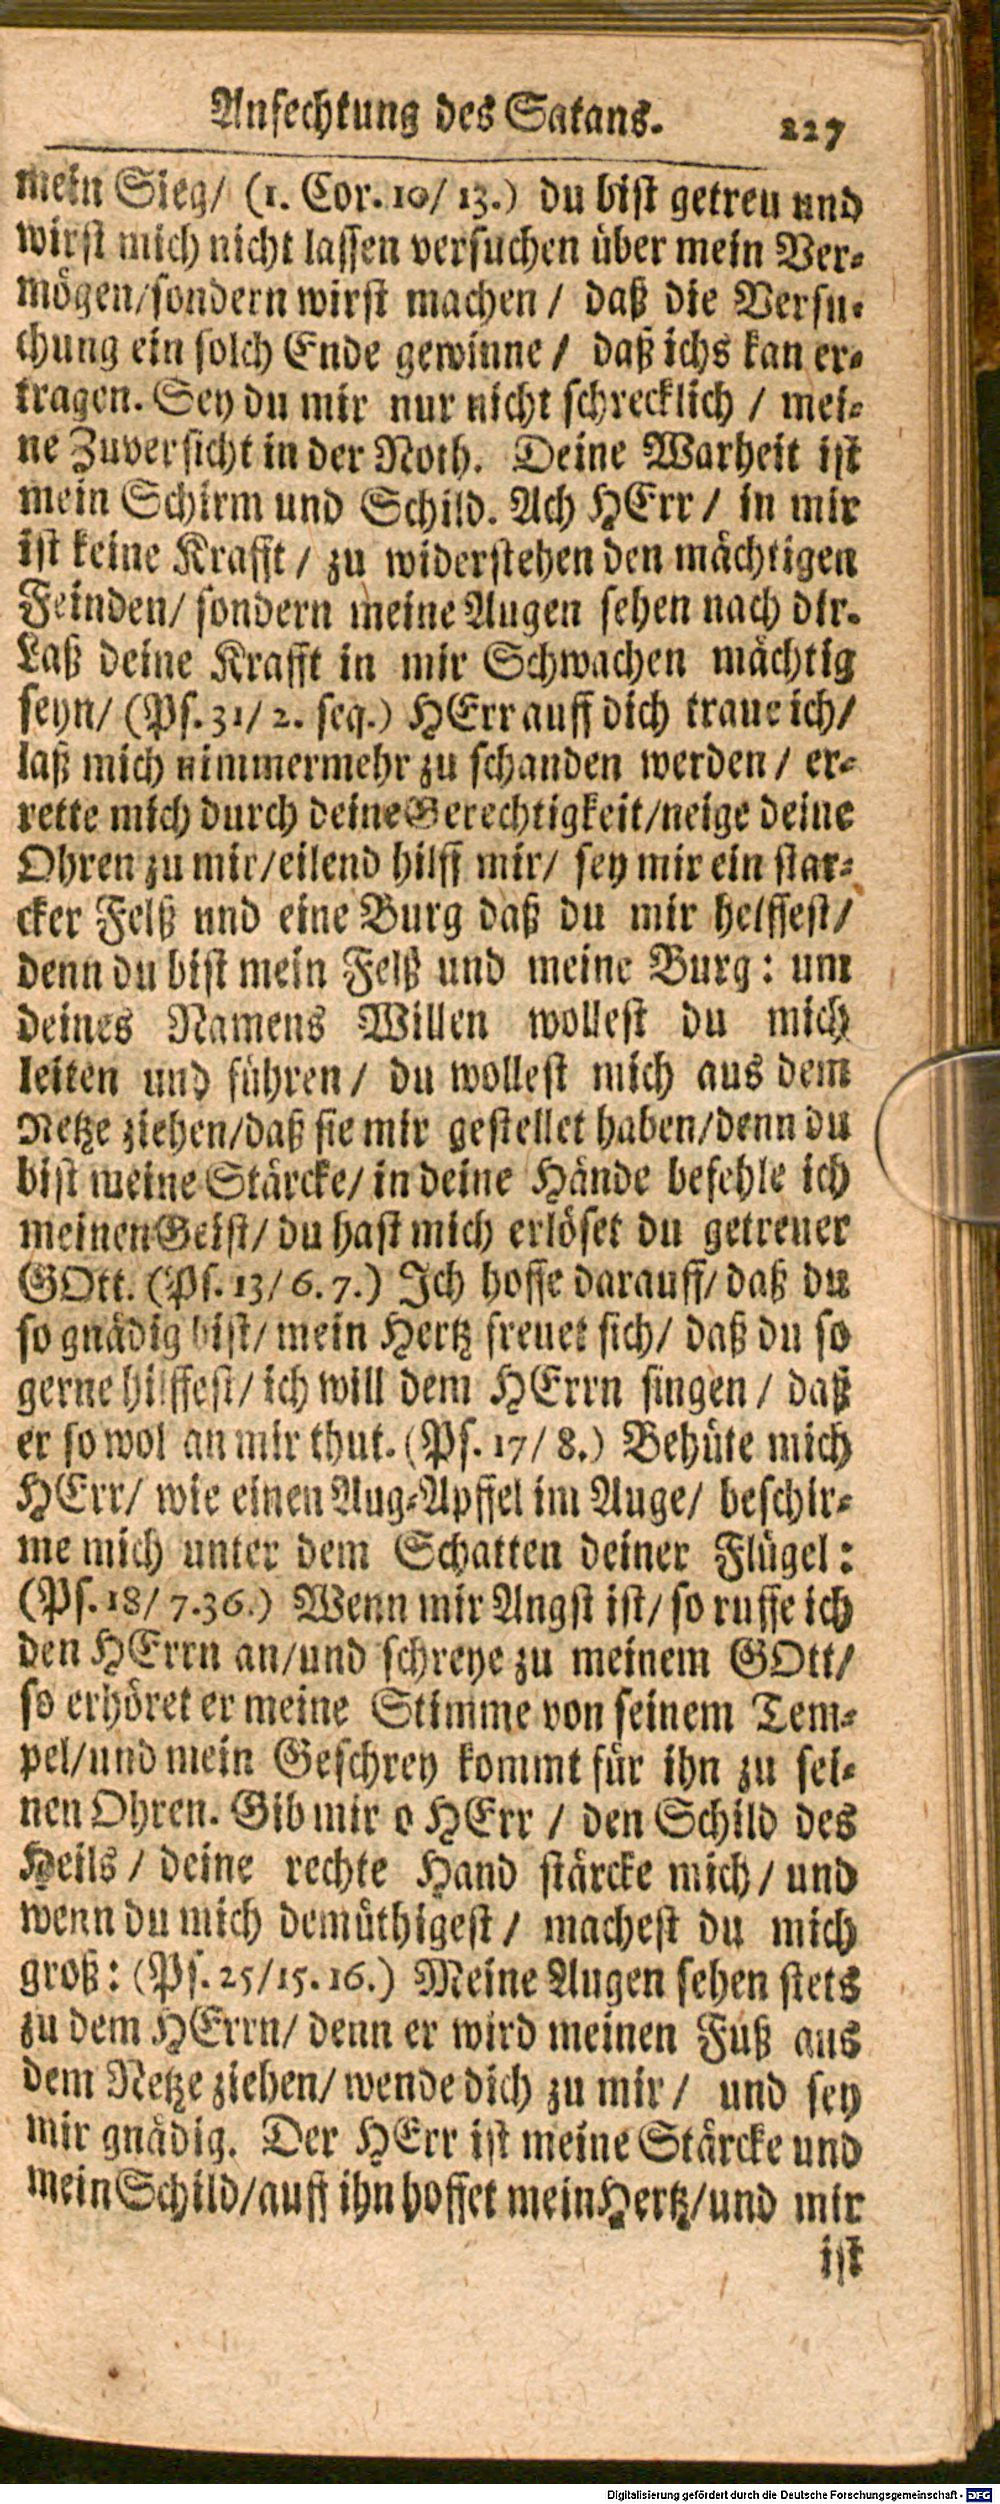 Anfechtung des Satans. 227
mein Sieg/ (1. Cor. 10/ 13.) du bist getreu und
wirst mich nicht lassen versuchen über mein Ver-
mögen/sondern wirst machen / daß die Versu-
chung ein solch Ende gewinne / daß ichs kan er-
tragen. Sey du mir nur nicht schrecklich / mei-
ne Zuversicht in der Noth. Deine Warheit ist
mein Schirm und Schild. Ach HErr / in mir
ist keine Krafft / zu widerstehen den mächtigen
Feinden/ sondern meine Augen sehen nach dir.
Laß deine Krafft in mir Schwachen mächtig
seyn/ (Ps. 31/ 2. seq.) HErr auff dich traue ich/
laß mich nimmermehr zu schanden werden / er-
rette mich durch deine Gerechtigkeit/neige deine
Ohren zu mir/eilend hilff mir/ sey mir ein star-
cker Felß und eine Burg daß du mir helffest/
denn du bist mein Felß und meine Burg: um
deines Namens Willen wollest du mich
leiten und führen / du wollest mich aus dem
Netze ziehen/daß sie mir gestellet haben/denn du
bist meine Stärcke/ in deine Hände befehle ich
meinen Geist/ du hast mich erlöset du getreuer
GOtt. (Ps. 13/ 6. 7.) Ich hoffe darauff/ daß du
so gnädig bist/ mein Hertz freuet sich/ daß du so
gerne hilffest/ ich will dem HErrn singen / daß
er so wol an mir thut. (Ps. 17/ 8.) Behüte mich
HErr/ wie einen Aug-Apffel im Auge/ beschir-
me mich unter dem Schatten deiner Flügel:
(Ps. 18/ 7.36.) Wenn mir Angst ist/ so ruffe ich
den HErrn an/und schreye zu meinem GOtt/
so erhöret er meine Stimme von seinem Tem-
pel/und mein Geschrey kommt für ihn zu sei-
nen Ohren. Gib mir o HErr / den Schild des
Heils / deine rechte Hand stärcke mich / und
wenn du mich demüthigest / machest du mich
groß: (Ps. 25/15. 16.) Meine Augen sehen stets
zu dem HErrn/ denn er wird meinen Fuß aus
dem Netze ziehen/ wende dich zu mir / und sey
mir gnädig. Der HErr ist meine Stärcke und
mein Schild/auff ihn hoffet mein Hertz/und mir
ist
Digitalisierung gefördert durch die Deutsche Forschungsgemeinschaft - DFG